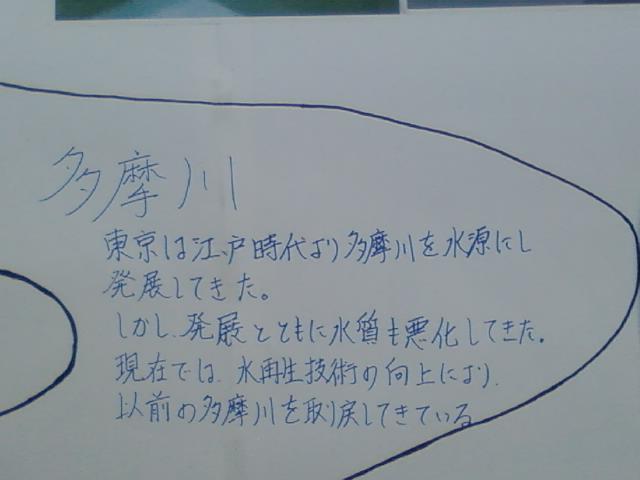 多摩川
東京は江戸時代より多摩川を水源にし
発展してきた。
しかし、発展とともに水質も悪化してきた。
現在では、水再生技術の向上により、
以前の多摩川を取り戻してきている